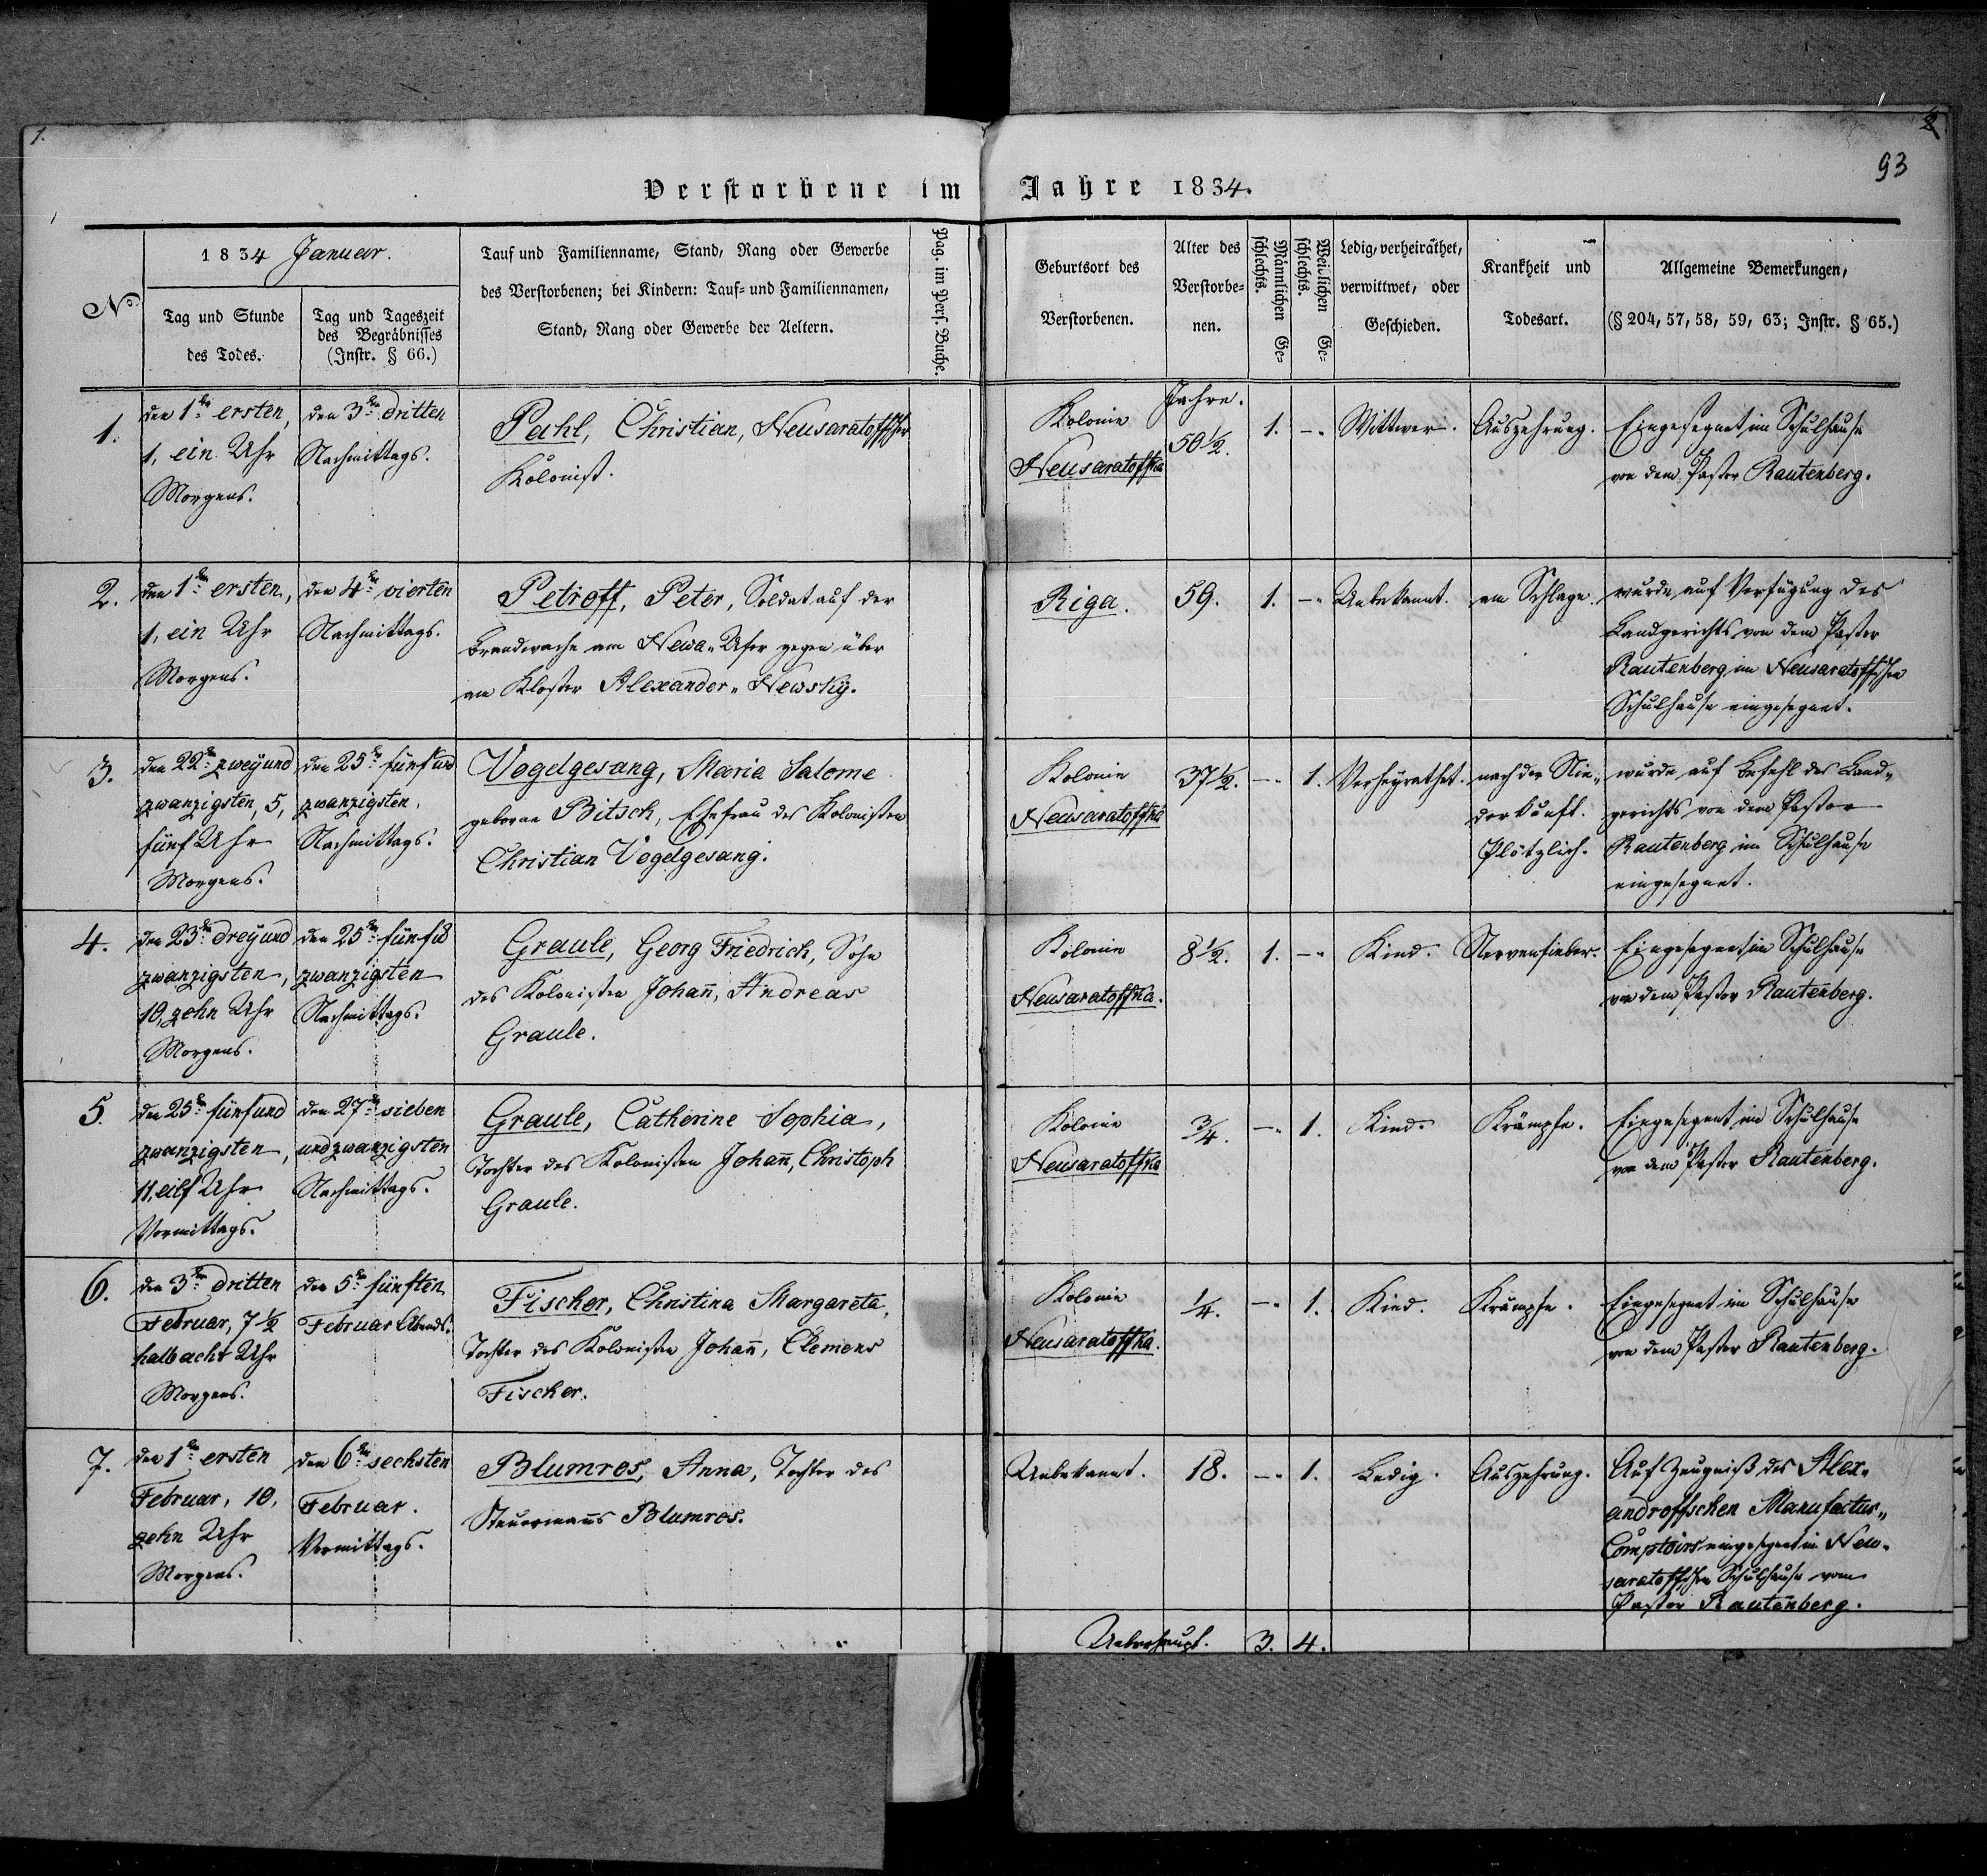 1.
2
93
Verstorbene im Jahre 1834.
No
1834 Januar.
Tag und Stunde
des Todes.
Tag und Tageszeit
des Begräbnisses
(Instr. § 66.)
Tauf und Familienname, Stand, Rang oder Gewerbe
des Verstorbenen; bei Kindern: Tauf- und Familiennamen,
Stand, Rang oder Gewerbe der Aeltern.
Pag. im Pers. Buche.
Geburtsort des
Verstorbenen.
Alter des
Verstorbe-
nen.
Männlichen Ge-
schlechts.
Weiblichen Ge-
schlechts.
Ledig, verheiräthet,
verwittwet, oder
Geschieden.
Krankheit und
Todesart.
Allgemeine Bemerkungen,
(§ 204, 57, 58, 59, 63; Instr. § 65.)
1.
den 1ten ersten,
1, ein Uhr
Morgens.
den 3ten dritten
Nachmittags.
Pahl, Christian, Neusaratoffscher
Kolonist.
Kolonie
Neusaratoffka
Jahre.
50 1/2.
1.
-"
Wittwer.
Auszehrung.
Eingesegnet im Schulhause
von dem Pastor Rautenberg.
2.
den 1ten ersten,
1, ein Uhr
Morgens.
den 4ten vierten
Nachmittags.
Petroff, Peter, Soldat auf der
Brandwache am Newa-Ufer gegen über
am Kloster Alexander-Newsky.
Riga.
59.
1.
-"
Unbekannt.
am Schlage.
wurde auf Verfügung des
Landgerichts von dem Pastor
Rautenberg im Neusaratoffschen
Schulhause eingesegnet.
3.
den 22ten zweyund
zwanzigsten, 5,
fünf Uhr
Morgens.
den 25ten fünfund
zwanzigsten,
Nachmittags.
Vogelgesang, Maria Salome
geborne Bitsch, Ehefrau des Kolonisten
Christian Vogelgesang.
Kolonie
Neusaratoffka
37 1/2.
-"
1.
Verheyrathet.
nach der Nie-
derkunft.
Plötzlich.
wurde auf Befehl des Land-
gerichts von dem Pastor
Rautenberg im Schulhause
eingesegnet.
4.
den 23ten dreyund
zwanzigsten,
10, zehn Uhr
Morgens.
den 25ten fünfu
zwanzigsten
Nachmittags.
Graule, Georg Friedrich, Sohn
des Kolonisten Johan̄, Andreas
Graule.
Kolonie
Neusaratoffka.
8 1/2.
1.
-"
Kind.
Nervenfieber.
Eingesegnet im Schulhause
von dem Pastor Rautenberg.
5.
den 25ten fünfund
zwanzigsten,
11, eilf Uhr
Vormittags.
den 27ten sieben
undzwanzigsten
Nachmittags.
Graule, Catherine Sophia,
Tochter des Kolonisten Johan̄, Christoph
Graule.
Kolonie
Neusaratoffka
3/4.
-"
1.
Kind.
Krämpfe.
Eingesegnet im Schulhause
von dem Pastor Rautenberg.
6.
den 3ten dritten
Februar, 7 1/2
halb acht Uhr
Morgens.
den 5ten fünften
Februar Abends.
Fischer, Christina Margareta,
Tochter des Kolonisten Johan̄, Clemens
Fischer.
Kolonie
Neusaratoffka.
1/4.
-"
1.
Kind.
Krämpfe.
Eingesegnet im Schulhause
von dem Pastor Rautenberg.
7.
den 1ten ersten
Februar, 10,
zehn Uhr
Morgens.
den 6ten sechsten
Februar.
Vormittags.
Blumres, Anna, Tochter des
Steuermans Blumres.
Unbekannt.
18.
-"
1.
Ledig.
Auszehrung.
Auf Zeugniß des Alex-
androffschen Manufactur-
Comptoirs eingesegnet im Neu-
saratoffschen Schulhause vom
Pastor Rautenberg.
Ueberhaupt.
3.
4.